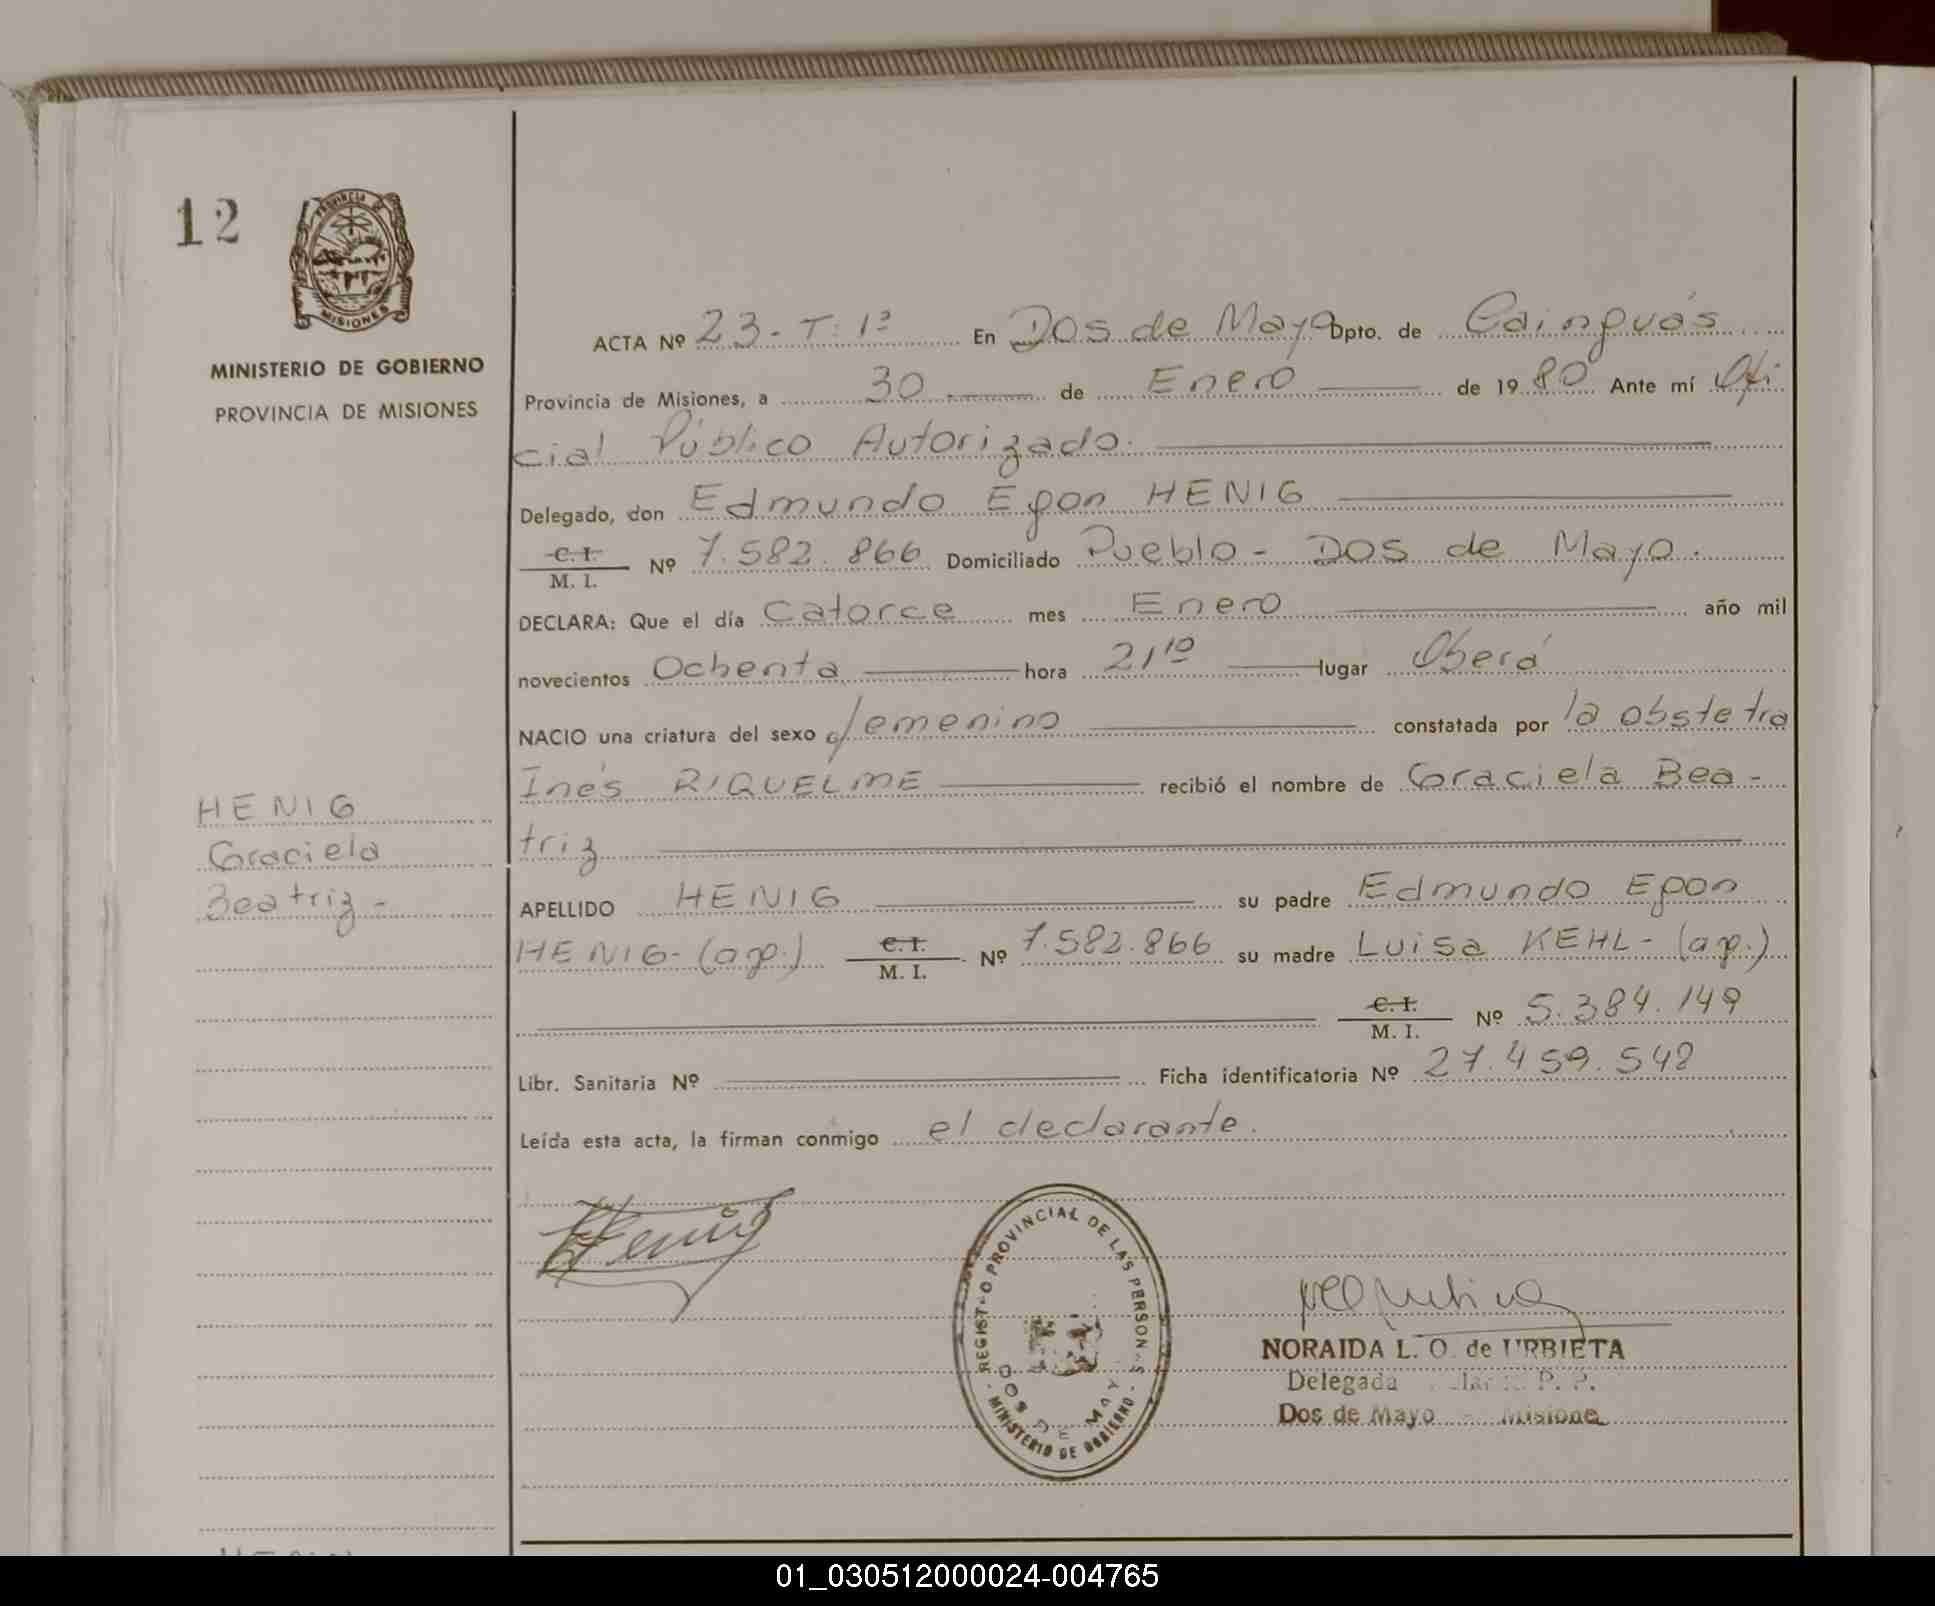 12
PROVINCIA DE
MISIONES
MINISTERIO DE GOBIERNO
PROVINCIA DE MISIONES
ACTA Nº 23-T: 1ª En Dos de Mayo Dpto. de Cainguás
Provincia de Misiones, a 30 de Enero de 1980 Ante mí Ofi
cial Público Autorizado.
Delegado, don Edmundo Egon HENIG
C. I.
M. I. Nº 7.582.866 Domiciliado Pueblo - Dos de Mayo.
DECLARA: Que el día Catorce mes Enero año mil
novecientos Ochenta hora 21 10 lugar Oberá
NACIO una criatura del sexo femenino constatada por la obstetra
Inés RIQUELME recibió el nombre de Graciela Bea-
triz
HENIG
Graciela
Beatriz -
APELLIDO HENIG su padre Edmundo Egon
HENIG- (arg.) C. I.
M. I. Nº 7.582.866 su madre Luisa KEHL- (arg.)
C. I.
M. I. Nº 5.384.149
Libr. Sanitaria Nº Ficha identificatoria Nº 27.459.548
Leída esta acta, la firman conmigo el declarante.
Henig
REGISTRO PROVINCIAL DE LAS PERSONAS
DOS DE MAYO
- MINISTERIO DE GOBIERNO -
NORAIDA L. O. de URBIETA
Delegada R. P. P.
Dos de Mayo - Misiones
01_030512000024-004765